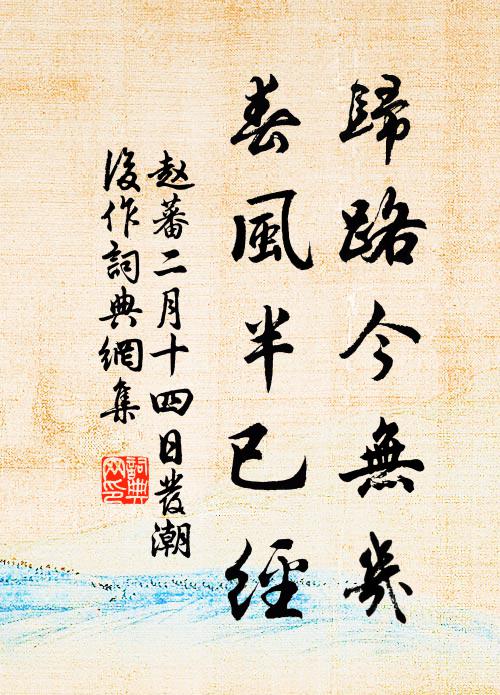 歸路今無幾
春風半已經
赵蕃二月十四日發潮
後作詞典網集
詞典
网印